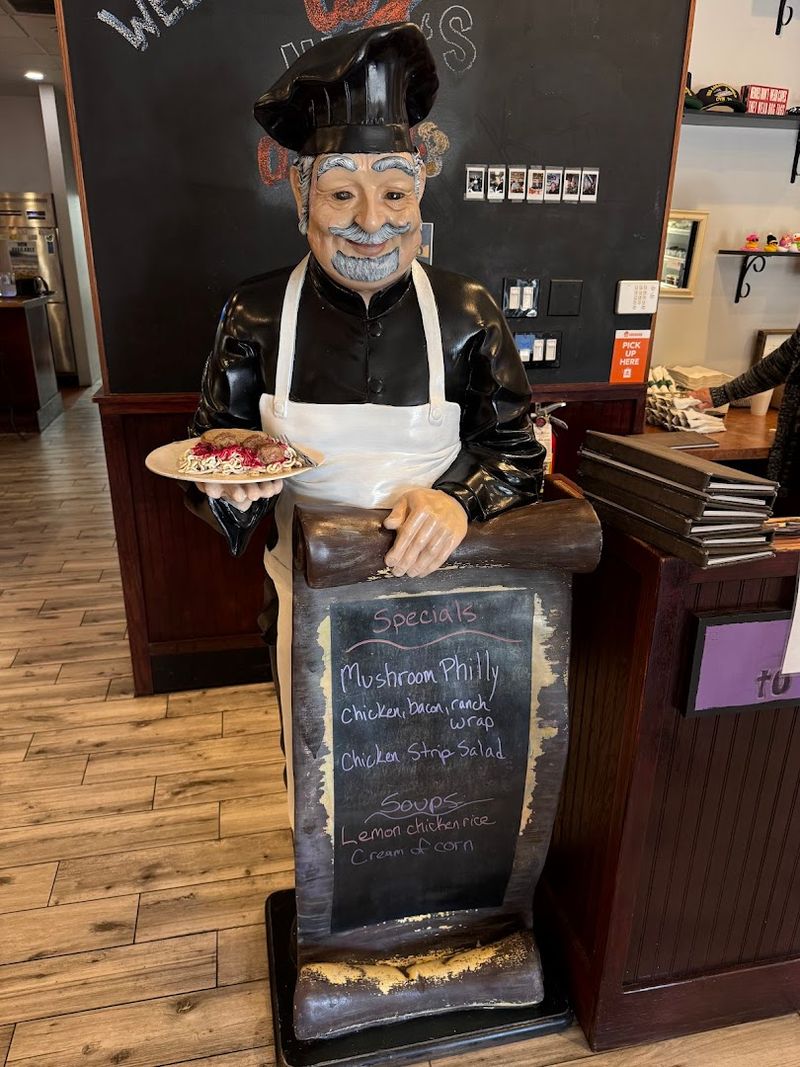 WE
'S
Specials
Mushroom Philly
Chicken, bacon, ranch
wrap
Chicken Strip Salad
Soups
Lemon chicken rice
Cream of corn
PICK
UP
HERE
to